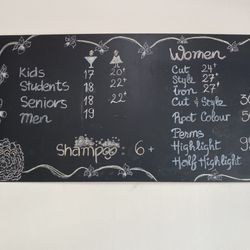 Kids 17 20+
Students 18 22+
Seniors 18 22+
Men 19
Shampoo: 6+
Women
Cut 24+
Style 27+
Iron 27+
Cut & Style
Root Colour
Perms
Highlight
Half Highlight